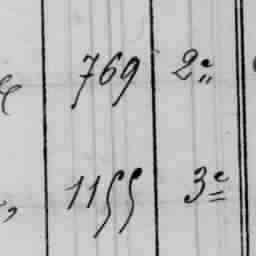 769 2e
1155 3e